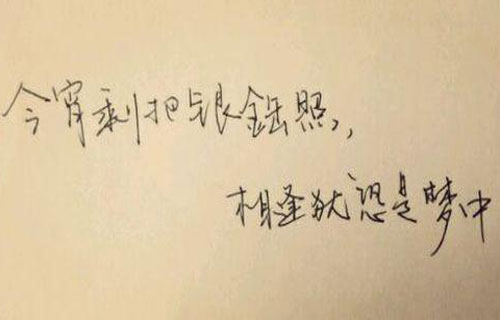 今宵剩把银釭照，
相逢犹恐是梦中